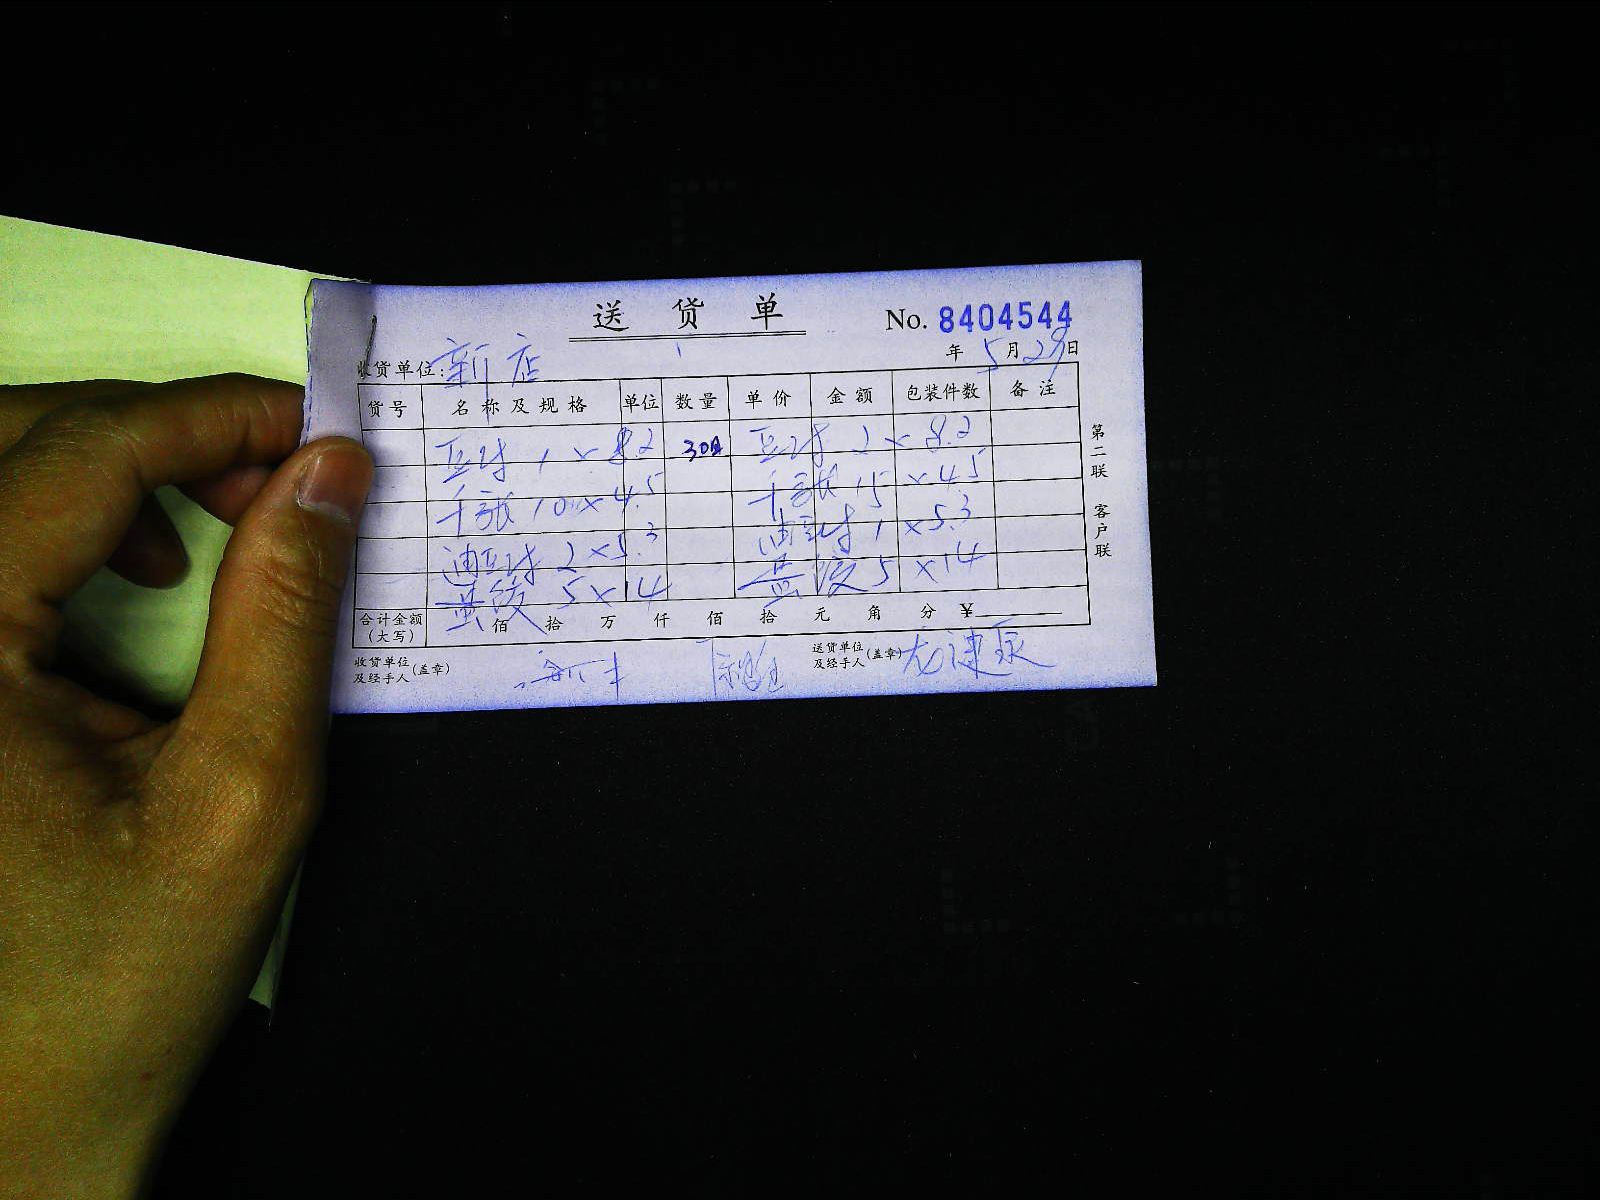 送货单
No. 8404544
收货单位: 新店 年 5 月 29 日
货号 名称及规格 单位 数量 单价 金额 包装件数 备注
豆付 1 × 8.2 豆付 2 × 8.2
千张 10 × 4.5 千张 15 × 4.5
油豆付 2 × 5.3 油豆付 1 × 5.3
5 × 14 5 × 14
合计金额(大写) 佰 拾 万 仟 佰 拾 元 角 分 ¥
收货单位及经手人(盖章) 送货单位及经手人(盖章)
第二联 客户联